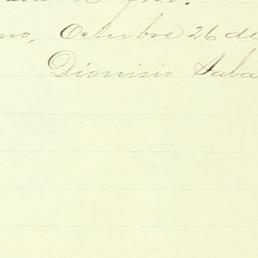 no, Octubre 26 de
Dionisio Sala